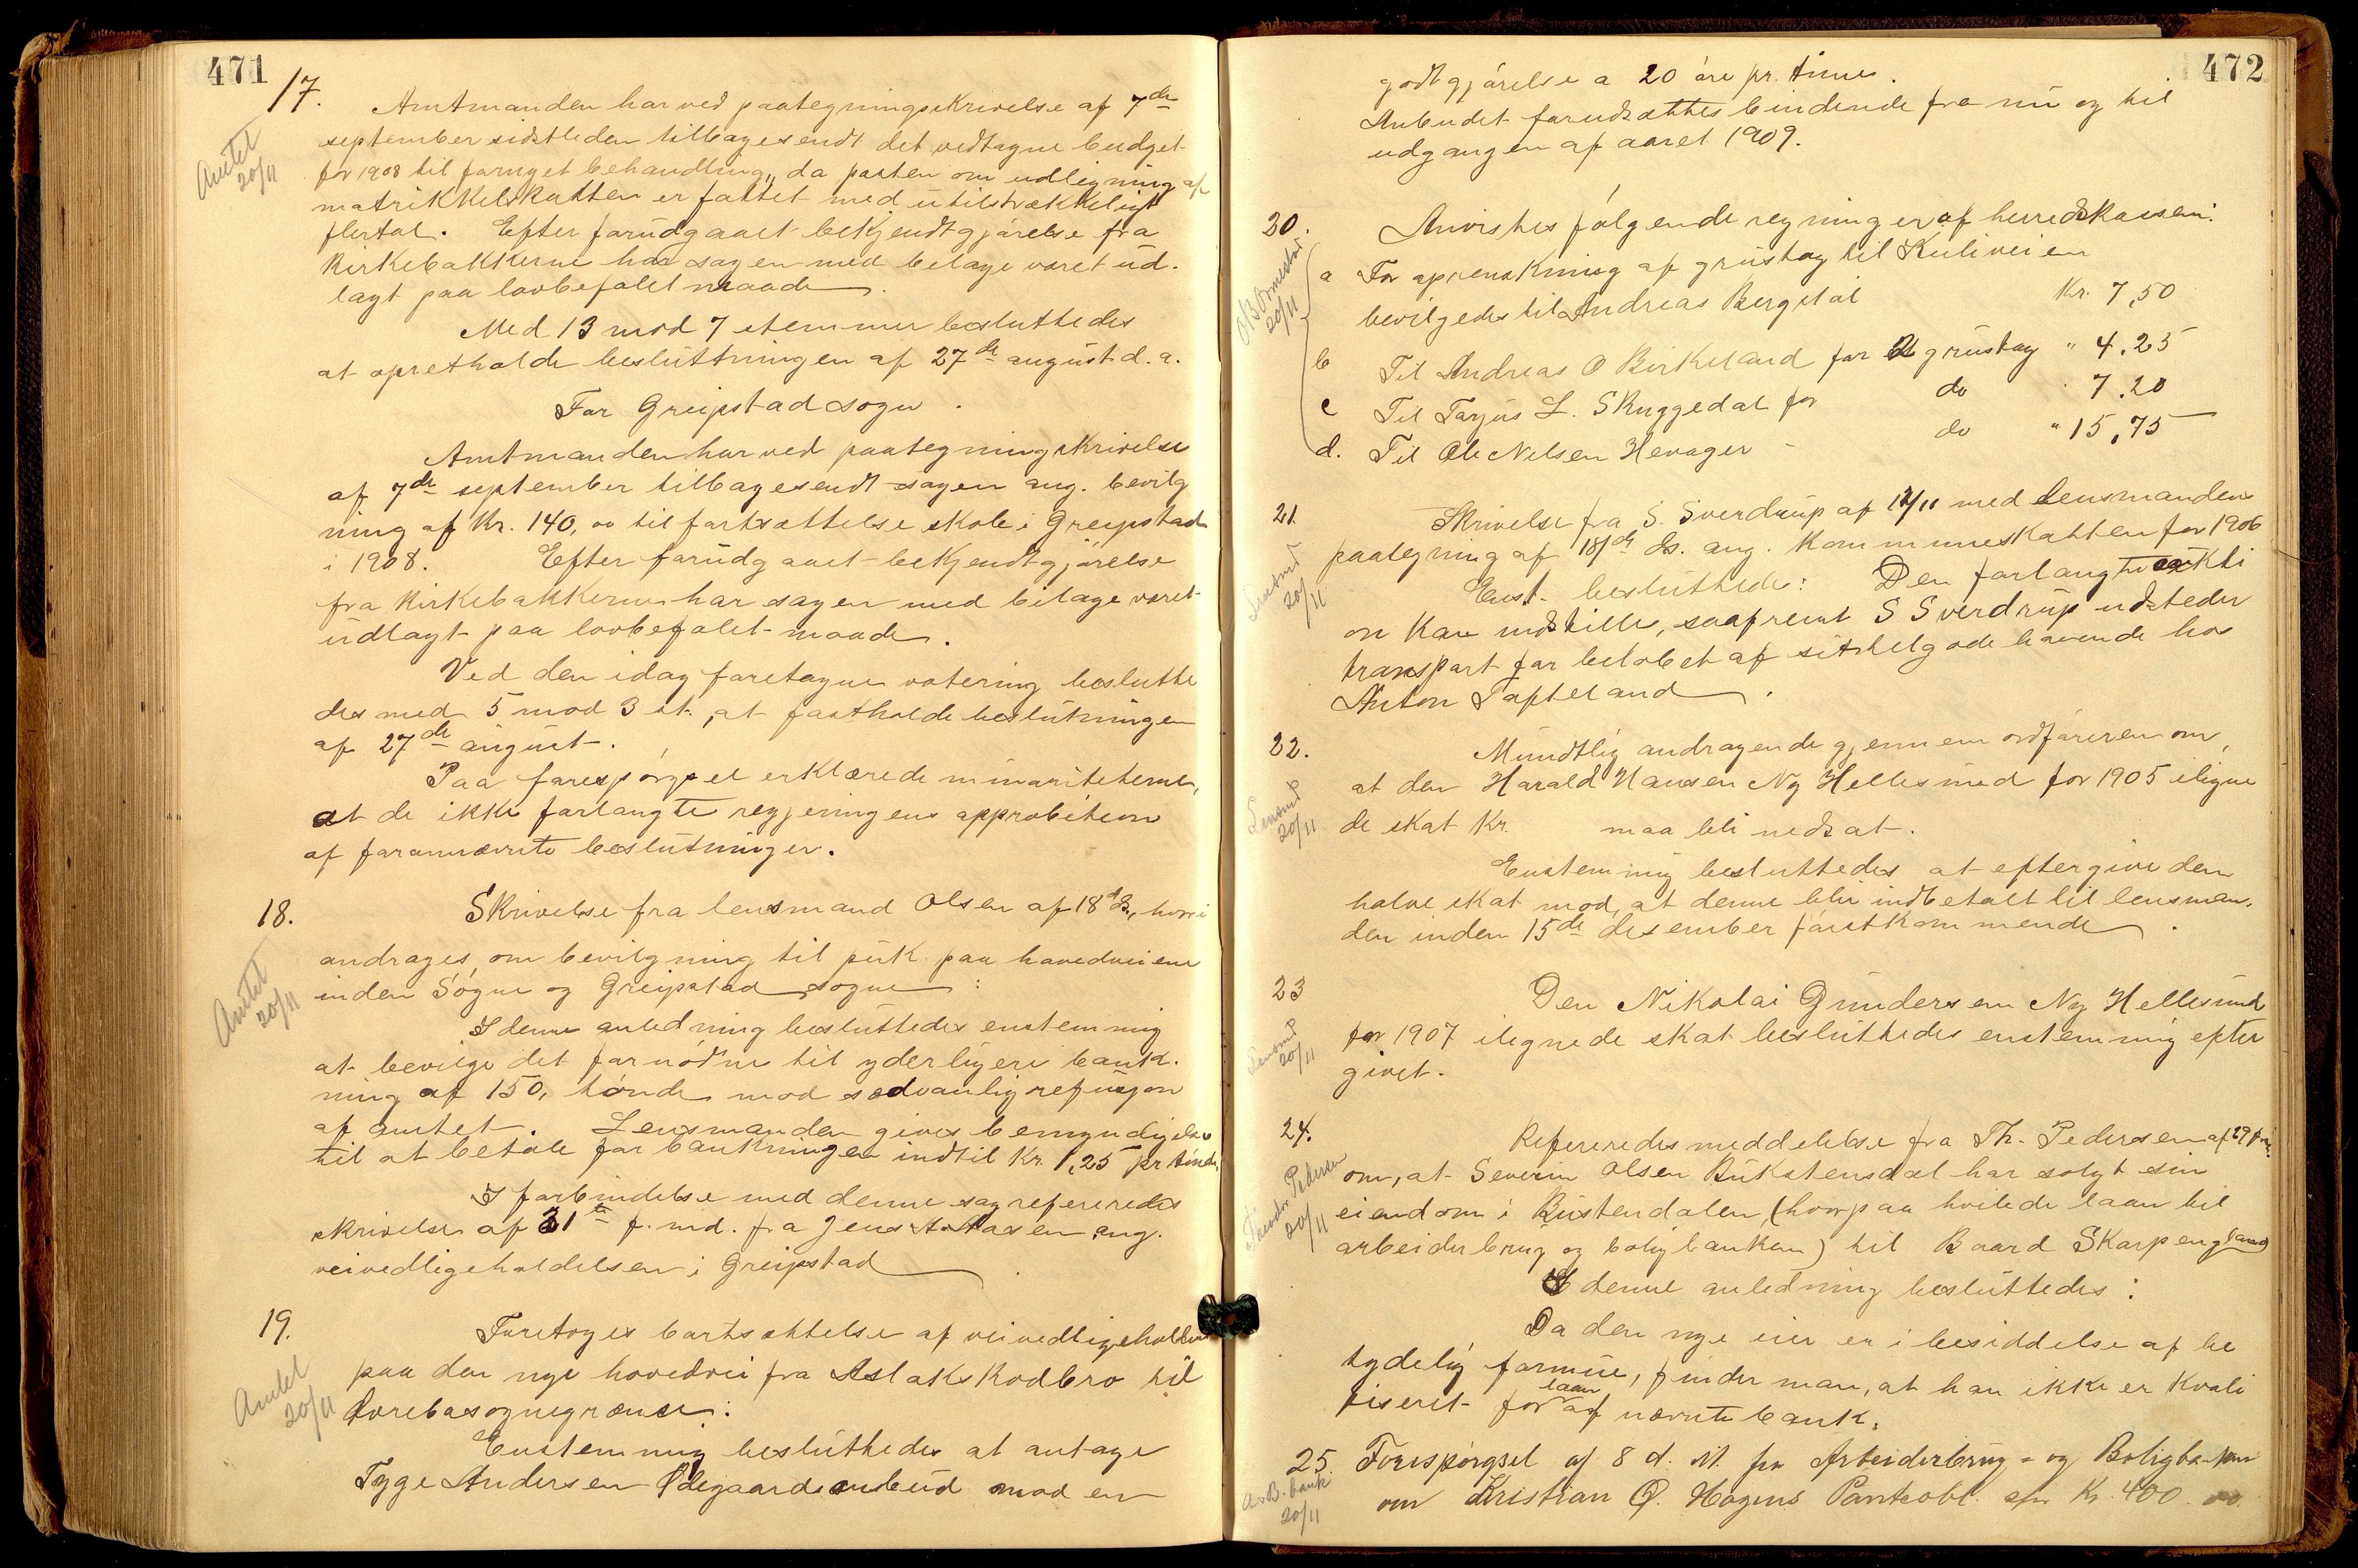 471
17.
Amtmanden har ved paategningsskrivelse af 7de
september sidstleden tilbagesendt det vedtagne budget
for 1908 til fornyet behandling, da posten om udligning af
matrikkelskatten er fattet med utilstrækkeligt
flertal. Efter forudgaaet bekjendtgjørelse fra
kirkebakkerne har sagen med belage været ud-
lagt paa lovbefalet maade.
Med 13 mod 7 stemmer besluttedes
at opretholde besluttningen af 27de august d. a.
For Greipstad sogn.
Amtmanden har ved paategningskrivelse
af 7de september tilbagesendt sagen ang. bevilg
ning af Kr. 140,00 til fortsættelse skole i Greipstad
i 1908. Efter forudgaaet bekjendtgjørelse
fra kirkebakkerne har sagen med bilage været
udlagt paa lovbefalet maade.
Ved den idag foretagne votering beslutte
des med 5 mod 3 st., at fastholde beslutningen
af 27de august.
Paa forespørgsel erklærede minoriteterne,
at de ikke forlangte regjeringens approbation
af forannævnte beslutninger.
Amtet
20/11
18.
Skrivelse fra lensmand Olsen af 18 ds., hvori
andrages om bevilgning til puk paa hovedveiene
inden Søgne og Greipstad sogne:
I denne anledning besluttedes enstemmig
at bevilge det fornødne til yderligere bank-
ning af 150, tønde mod sædvanlig refusjon
af amtet. Lensmanden gives bemyndigelse
til at betale for bankningen indtil Kr. 1,25 pr tønde,
I forbindelse med denne sag refereredes
skrivelse af 31te f. md. fra Jens A. Aasen ang.
veivedligeholdelsen i Greipstad.
Amtet
20/11
19.
Foretoges bortsættelse af veivedligeholdelse
paa den nye hovedvei fra Aslakskodbro til
Øvrebøsognegrændse:
Enstemmig besluttedes at antage
Tygge Andersen Ødegaards anbud mod en
Amtet
20/11
472
godtgjørelse a 20 øre pr. time.
Anbudet forudsættes bindende fra nu og til
udgangen af aaret 1909.
20.
Anvistes følgende regninger af herredskassen:
a For oprenskning af grustag til Kuliveien
bevilgedes til Andreas Bergstøl Kr. 7,50
b Til Andreas O Birkeland for grustag " 4.25
c Til Tarjus L. Skuggedal for do " 7.20
d. Til Ole Nilsen Hevager - do " 15,75
20/11
21.
Skrivelse fra S. Sverdrup af 12/11 med lensmandens
paategning af 18de ds. ang. kommuneskatten for 1906
Enst. besluttede: Den forlangte auksti
on kan indstilles, saafremt S Sverdrup udsteder
transport for beløbet af sit tilgodehavende hos
Anton Tofteland.
Lensmd
20/11
22.
Mundtlig andragende gjennem ordføreren om,
at den Harald Hansen Ny Hellesund for 1905 iligne
de skat Kr. maa bli nedsat.
Enstemmig besluttedes at eftergive den
halve skat mod, at denne blir indbetalt til lensman-
den inden 15de desember førstkommende.
Lensmd
20/11
23
Den Nikolai Gundersen Ny Hellesund
for 1907 ilignede skat besluttedes enstemmig efter
givet.
Lensmd
20/11
24.
Refereredes meddelelse fra Th. Pedersen af 29 f. m.
om, at Severin Olsen Rukstensdal har solgt sin
eiendom i Rustendalen, (hvorpaa hvilede laan til
arbeiderbrug og boligbanken) til Baard Skarpengland
I denne anledning besluttedes:
Da den nye eier er i besiddelse af be
tydelig formue, finder man, at han ikke er kvali
fiseret for laan af nævnte bank.
Pedersen
20/11
25. Forespørgsel af 8 d. M. fra Arbeiderbrug- og Boligbanken
om Kristian O. Hagens Panteobl. for Kr. 400.00.
A & B. bank
20/11